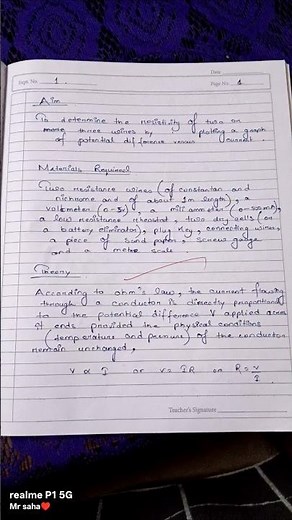 Date
Expt. No. 1
Page No. 1
Aim
To determine the resistivity of two or
more three wires by plotting a graph
of potential difference versus current.
Materials Required
Two resistance wires (of constantan and
nichrome and of about 1m length), a
voltmeter (0-3v), a mili ammeter (0-500 mA),
a low resistance rheostat, two dry cells (or
a battery eliminator), plug key, connecting wires,
a piece of sand paper, screw gauge
and a metre scale
Theory
According to ohm's law, the current flowing
through a conductor is directly proportional
to the potential difference V applied across
it ends provided the physical conditions
(temperature and pressure) of the conductor
remain unchanged,
V ∝ I or V = IR or R = V/I
Teacher's Signature
realme P1 5G
Mr saha❤️